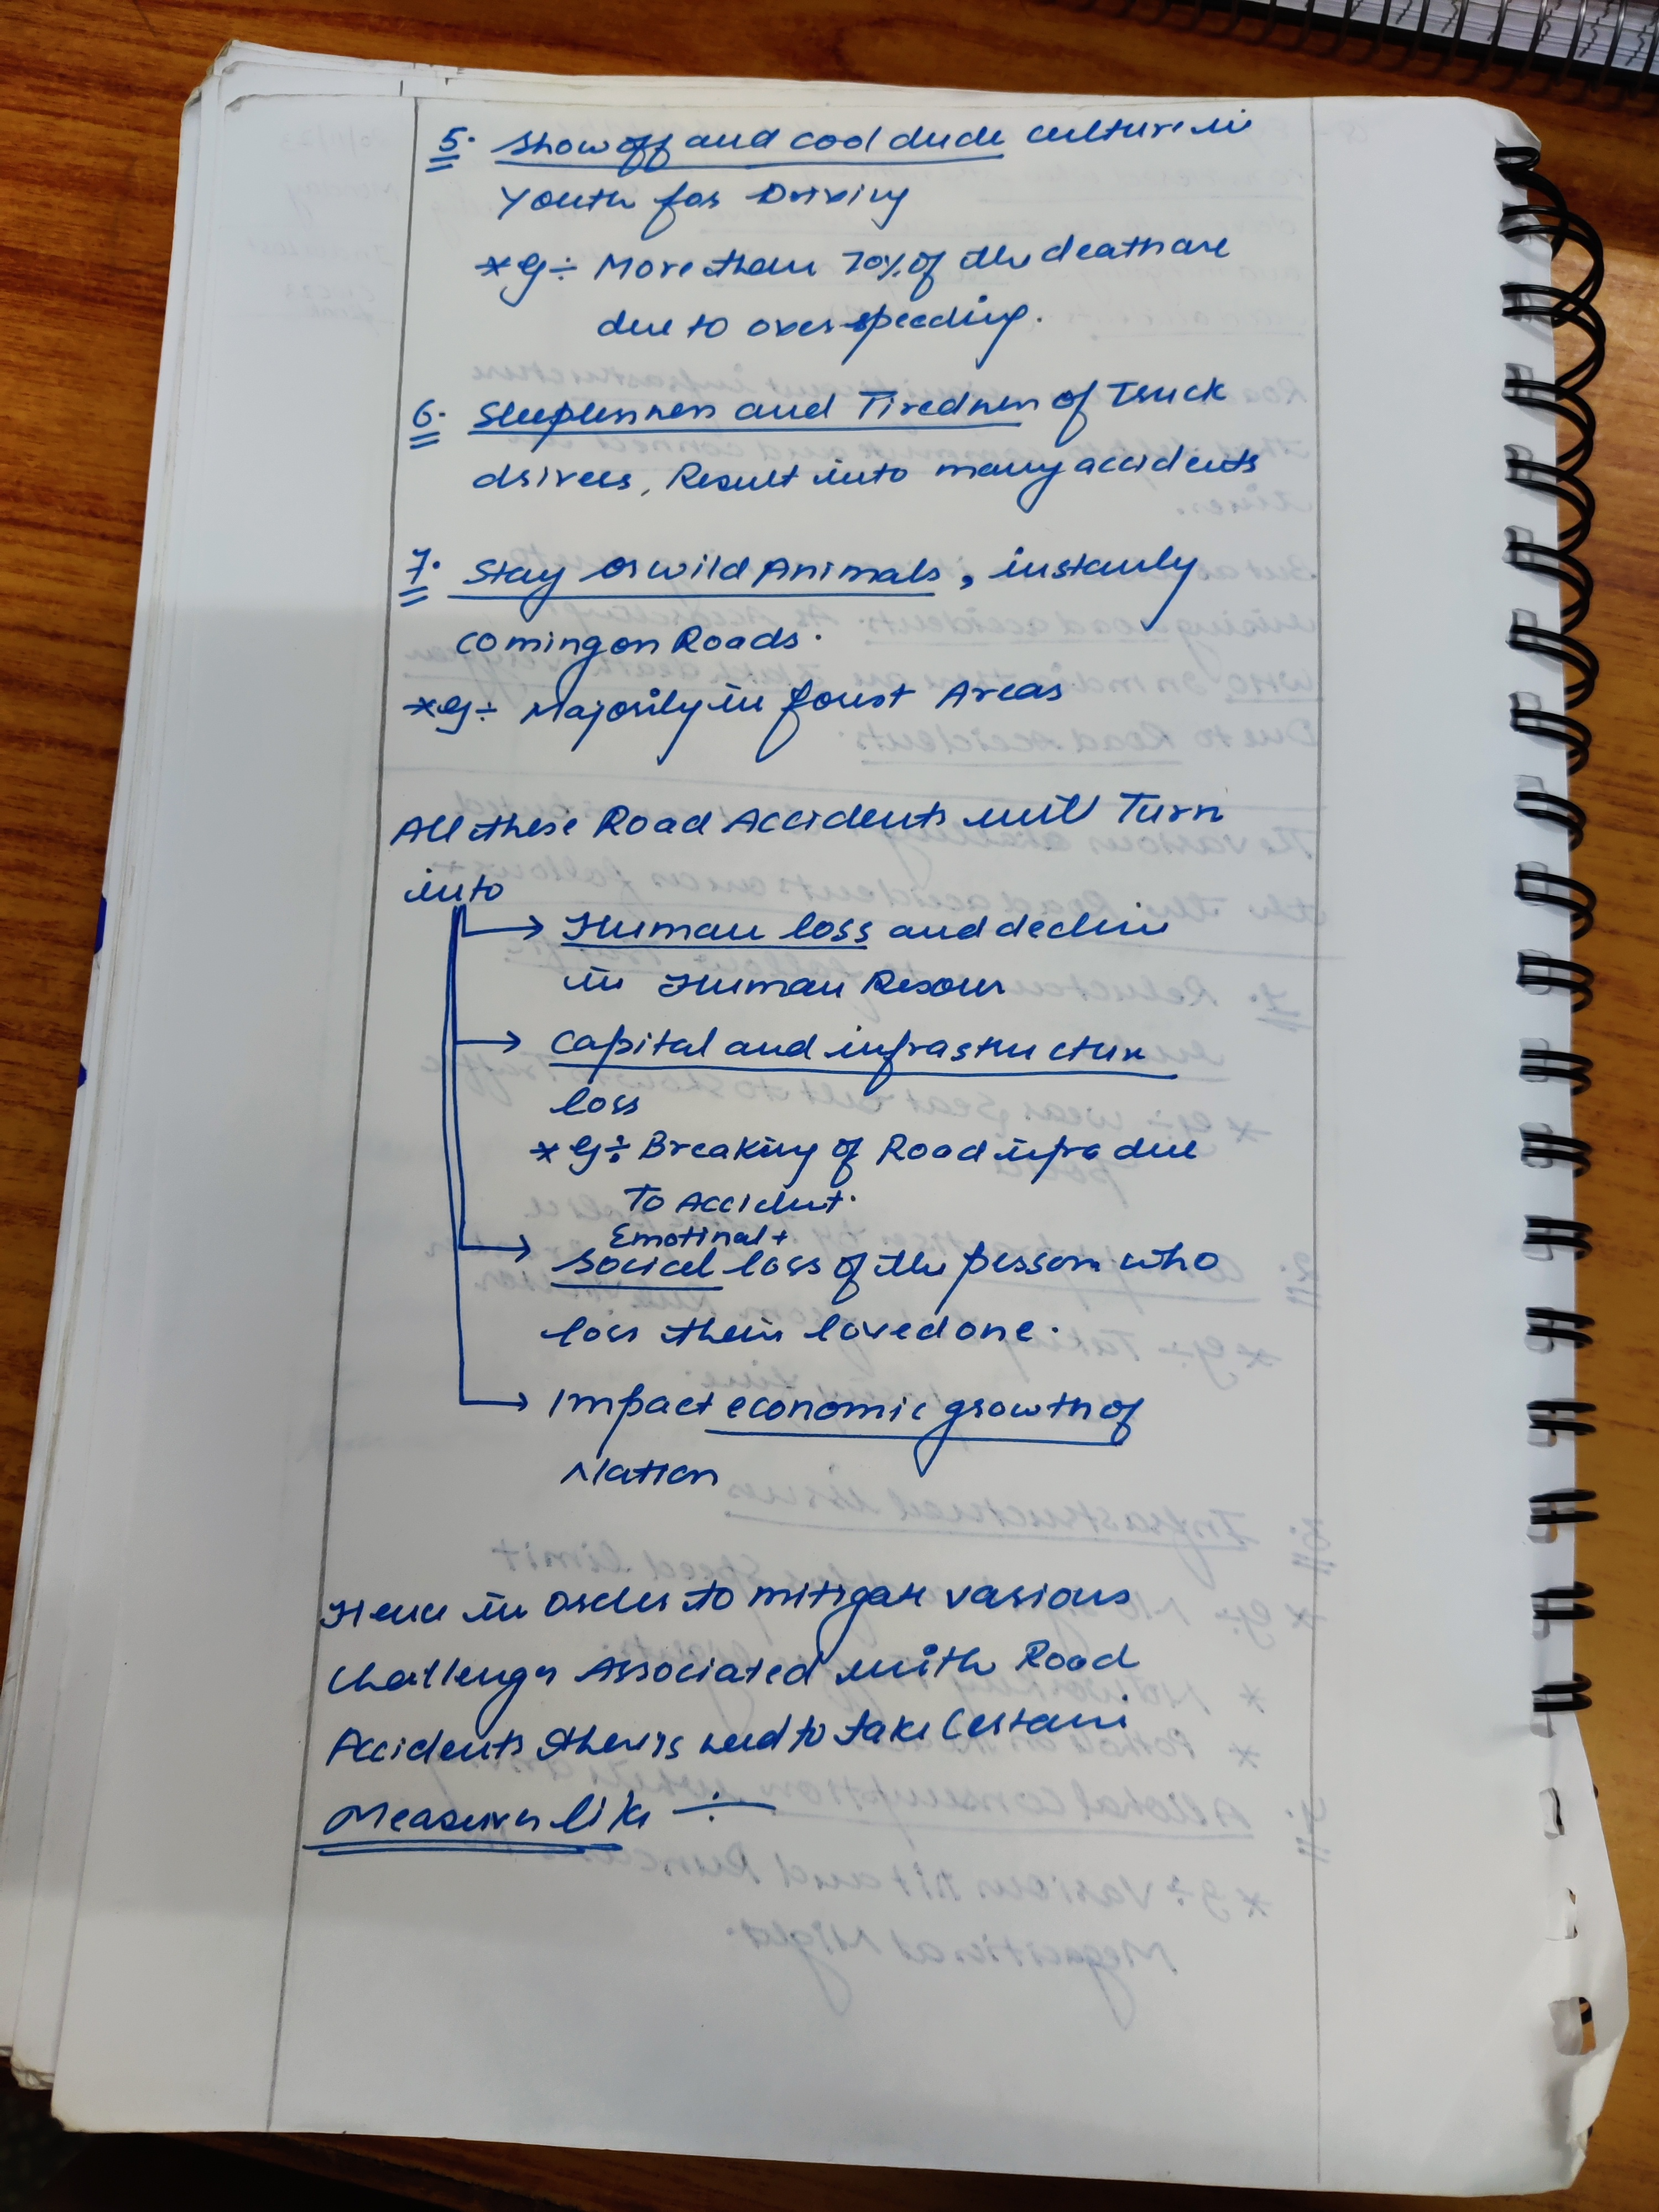 5. Show off and cool dude culture in
Youth for Driving
*eg÷ More than 70% of the death are
due to over speeding.
6. Sleeplessness and Tiredness of Truck
drivers, Result into many accidents
7. Stay or wild Animals, instantly
coming on Roads.
*eg÷ Majorily in forest Areas
All these Road Accidents will Turn
into
→ Human loss and decline
in Human Resour
→ Capital and infrastructure
loss
*eg÷ Breaking of Road infra due
To Accident.
Emotinal +
→ Social loss of the person who
loss their loved one.
→ Impact economic growth of
Nation
Hence in order to mitigate various
Challenges Associated with Road
Accidents ther is need to take Certain
Measures like ÷